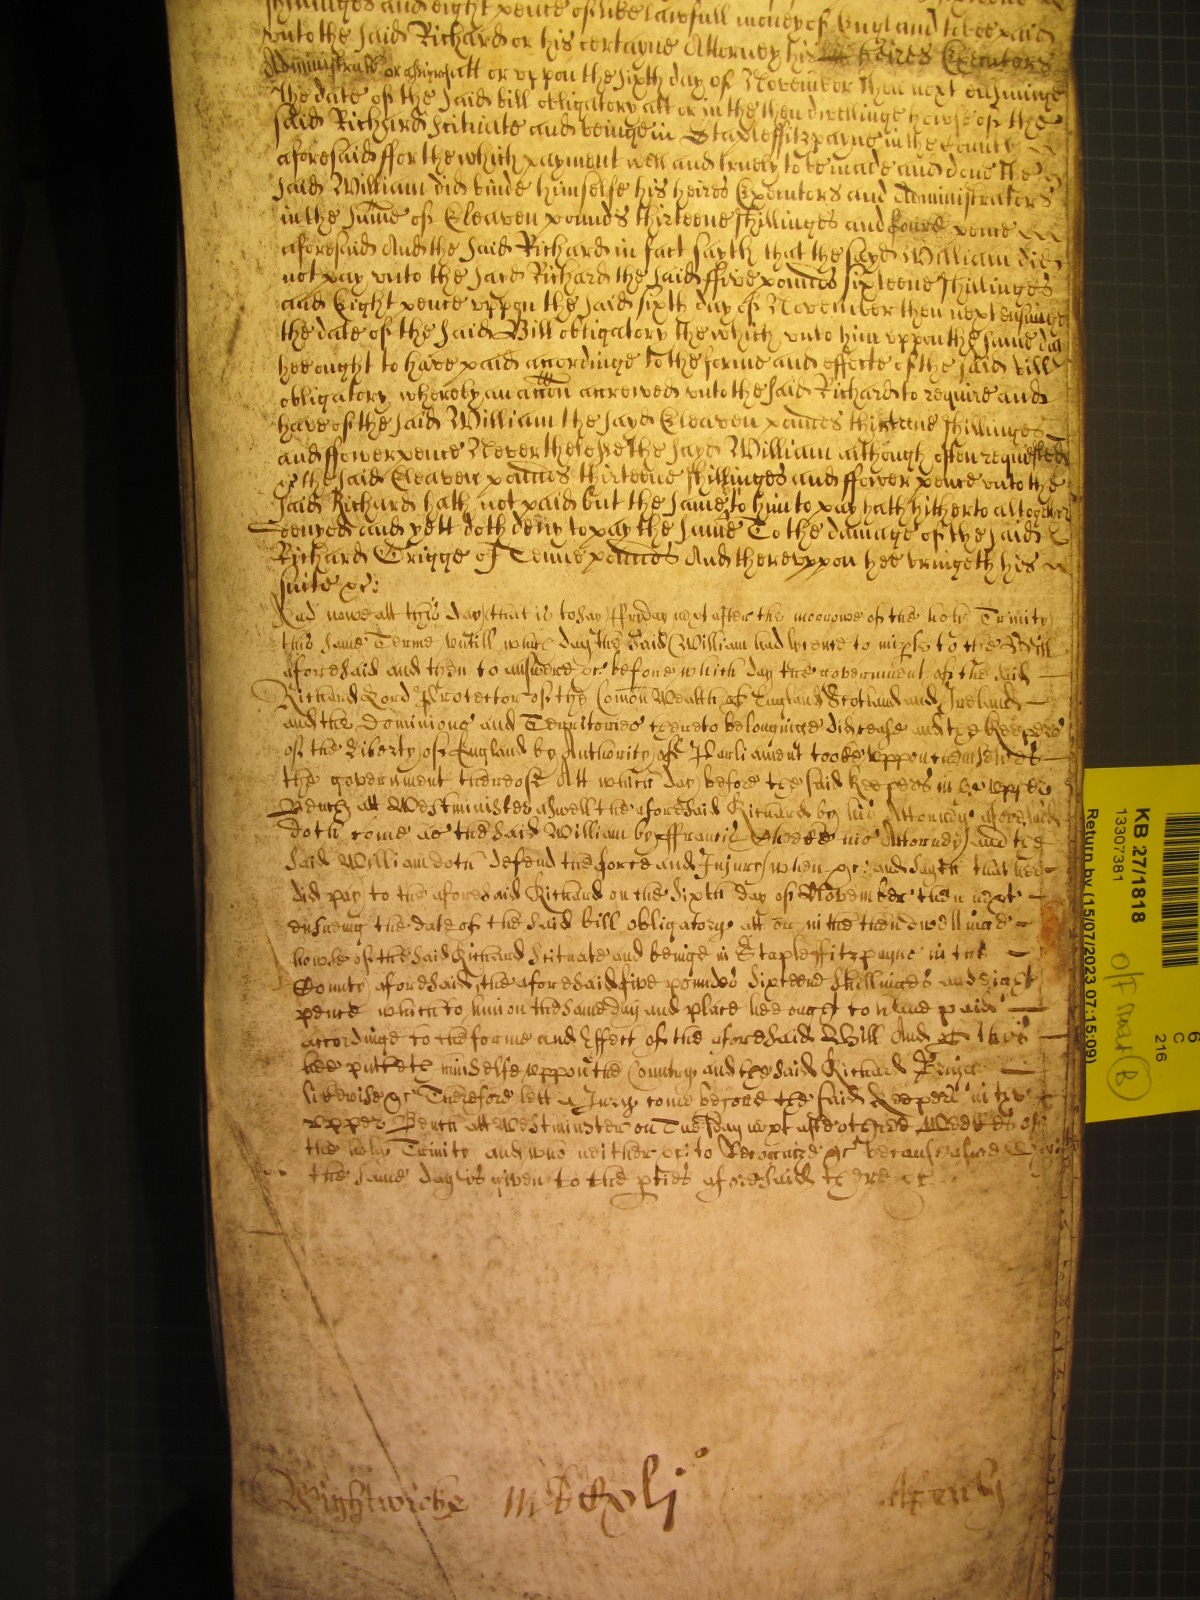 shillinges and eight pence of like lawfull money of England to bee paid
vnto the said Richard or his certayne Attorney his heires Executors
Administrators or assignes att or vppon the sixth day of November then next ensuinge
the date of the said bill obligatory att or in the then dwellinge howse of the
said Richard scituate and beinge in Stapleffitzpayne in the County
aforesaid ffor the which payment well and truely to be made and done the
said William did binde himselfe his heires Executors and Administrators
in the sume of Eleaven pounds thirteene shillinges and foure pence
aforesaid And the said Richard in fact sayth that the sayd William did
not pay vnto the said Richard the said ffive pounds sixteene shillinges
and Eight pence vppon the said sixth day of November then next ensuinge
the date of the said Bill obligatory the which vnto him vppon the same day
hee ought to have paid accordinge to the forme and effecte of the said bill
obligatory whereby an accon accrewed vnto the said Richard to require and
have of the said William the sayd Eleaven pounds thirteene shillinges
and ffower pence Neverthelesse the sayd William although often requested
the said Eleaven pounds thirteene shillinges and ffower pence vnto the
said Richard hath not paid but the same to him to pay hath hitherto altogether
denyed and yett doth deny to pay the same To the damage of the said
Richard Trigge of Tenne pounds And therevppon hee bringeth his
suite &c:
And nowe att this day that is to say ffryday next after the morrowe of the holy Trinity
this same Terme vntill which day the said William had licence to imparle to the Bill
aforesaid and then to answere &c before which day the goverment of the said
Richard Lord Protector of the Comon Wealth of England Scotland and Ireland
and the Dominions and Territories thereto belonginge did cease and the Keepers
of the Liberty of England by Authority of Parliament tooke vppon themselves
the government thereof Att which day before the said Keepers in the vpper
Bench att Westminster aswell the aforesaid Richard by his Attorney aforesaid
doth come as the said William by ffrancis his Attorney and the
said William doth defend the force and Injury when &c: and sayth that hee
did pay to the aforesaid Richard on the sixth day of November then next
ensueing the date of the said bill obligatory att or in the then dwellinge
howse of the said Richard scituate and beinge in Staplefitzpayne in the
County aforesaid the aforesaid five poundes sixteene shillinges and eight
pence which to him on the same day and place hee ought to have paid
accordinge to the forme and effect of the aforesaid Bill And of this
hee putteth himselfe vppon the Country and the said Richard Trigge
likewise &c Therefore lett a Jury come before the said Keepers in the
vpper Bench att Westminster on Tuesday next after three Weekes of
the holy Trinity and who neither &c to Recognize &c because aswell &c
the same day is given to the pties aforesaid there &c
Wightwicke
KB 27/1818
13307381
Return by (15/07/2023 07:15:09)
C
216